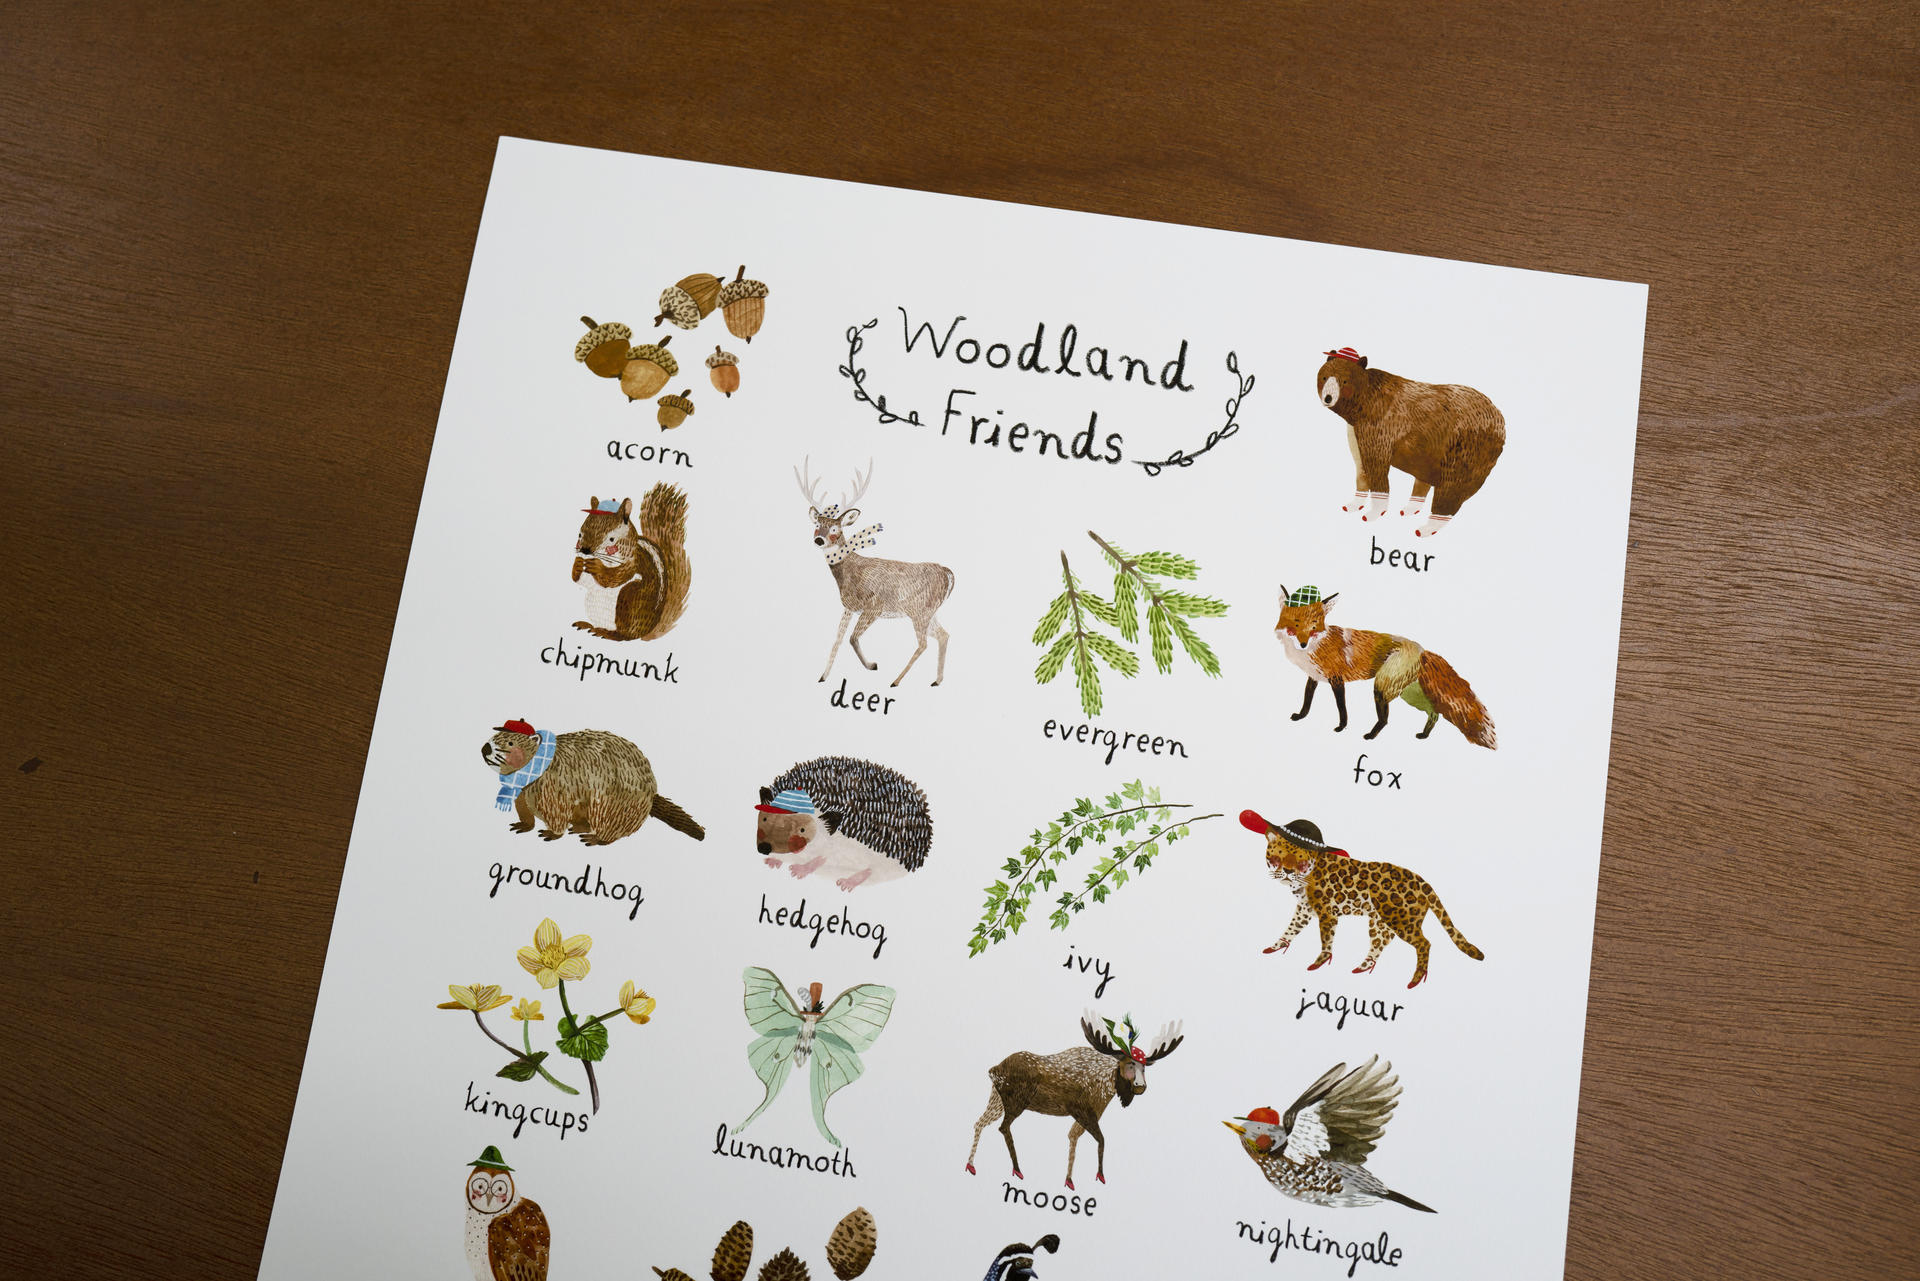 Woodland
Friends
acorn
bear
chipmunk
deer
evergreen
fox
groundhog
hedgehog
ivy
jaguar
kingcups
lunamoth
moose
nightingale